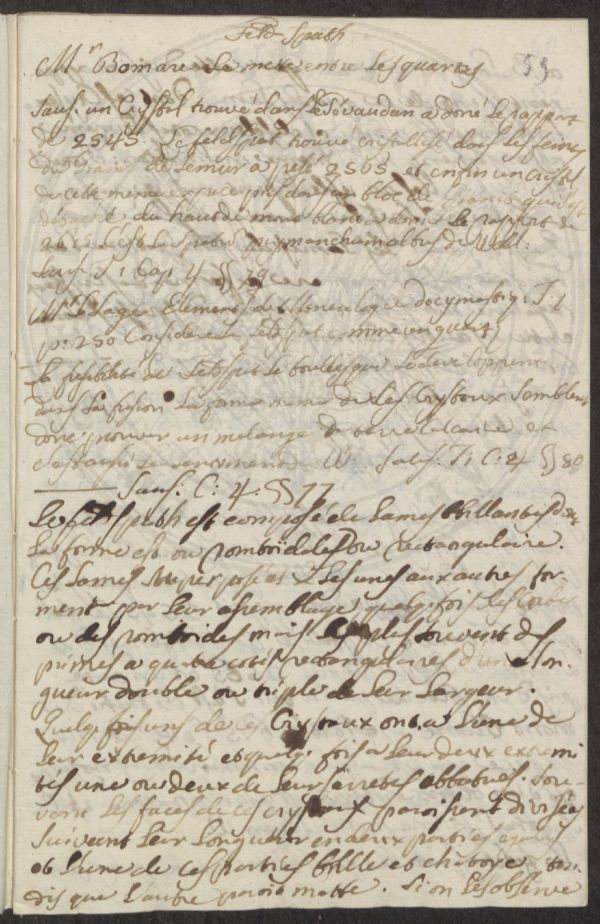 Feld-Spath
59
Mr Bomare le mette entre les quartz
Sauss. un Crystal trouvé dans le Gévaudan a doné le rapport
de 2545. Le feldspat trouvé cristallisé dans les fentes
du Granit de Semur a pesé 2505, et enfin un cristal
de cette meme espece pris dans un bloc de Granit qui est
détaché du haut du mont blanc a doné le rapport de
2615 C'est le Spatum pyrimachum albus de Wall.
Sauss. T 1 Cap 4 §§ 79
Mr le Sage Elements de Minerologie docymastiq. T. 1
p: 230 Considere le feldspat comme un quartz
La fusibilité du feldspat les boulles qui se développent
dans sa fusion la forme meme de ses Crystaux semblent
donc prouver un melange de terre calcaire et
c'est aussi le sentiment Sauss. T 1 C: 4 §§ 80
Sauss. C: 4: §§ 77
Le feldspath est composé de lames brillantes dont
la forme est ou romboidale ou rectangulaire.
Ces lames superposées les unes aux autres for-
ment par leur assemblage quelq. fois des cubes
ou des romboides mais les plus souvent des
prismes a quatre cotés rectangulaires d'une lon-
gueur double ou triple de leur largeur.
Quelq. fois uns de ces Crystaux ont a l'une de
leur extremité et quelq. fois a leur deux extremi
tés une ou deux de leurs arretes abbatues. Sou-
vent les faces de ces crystaux paroissent divisées
suivant leur longueur en deux parties egales
et l'une de ces parties brille et chatoye tan-
dis que l'autre paroit matte. Si on les observe